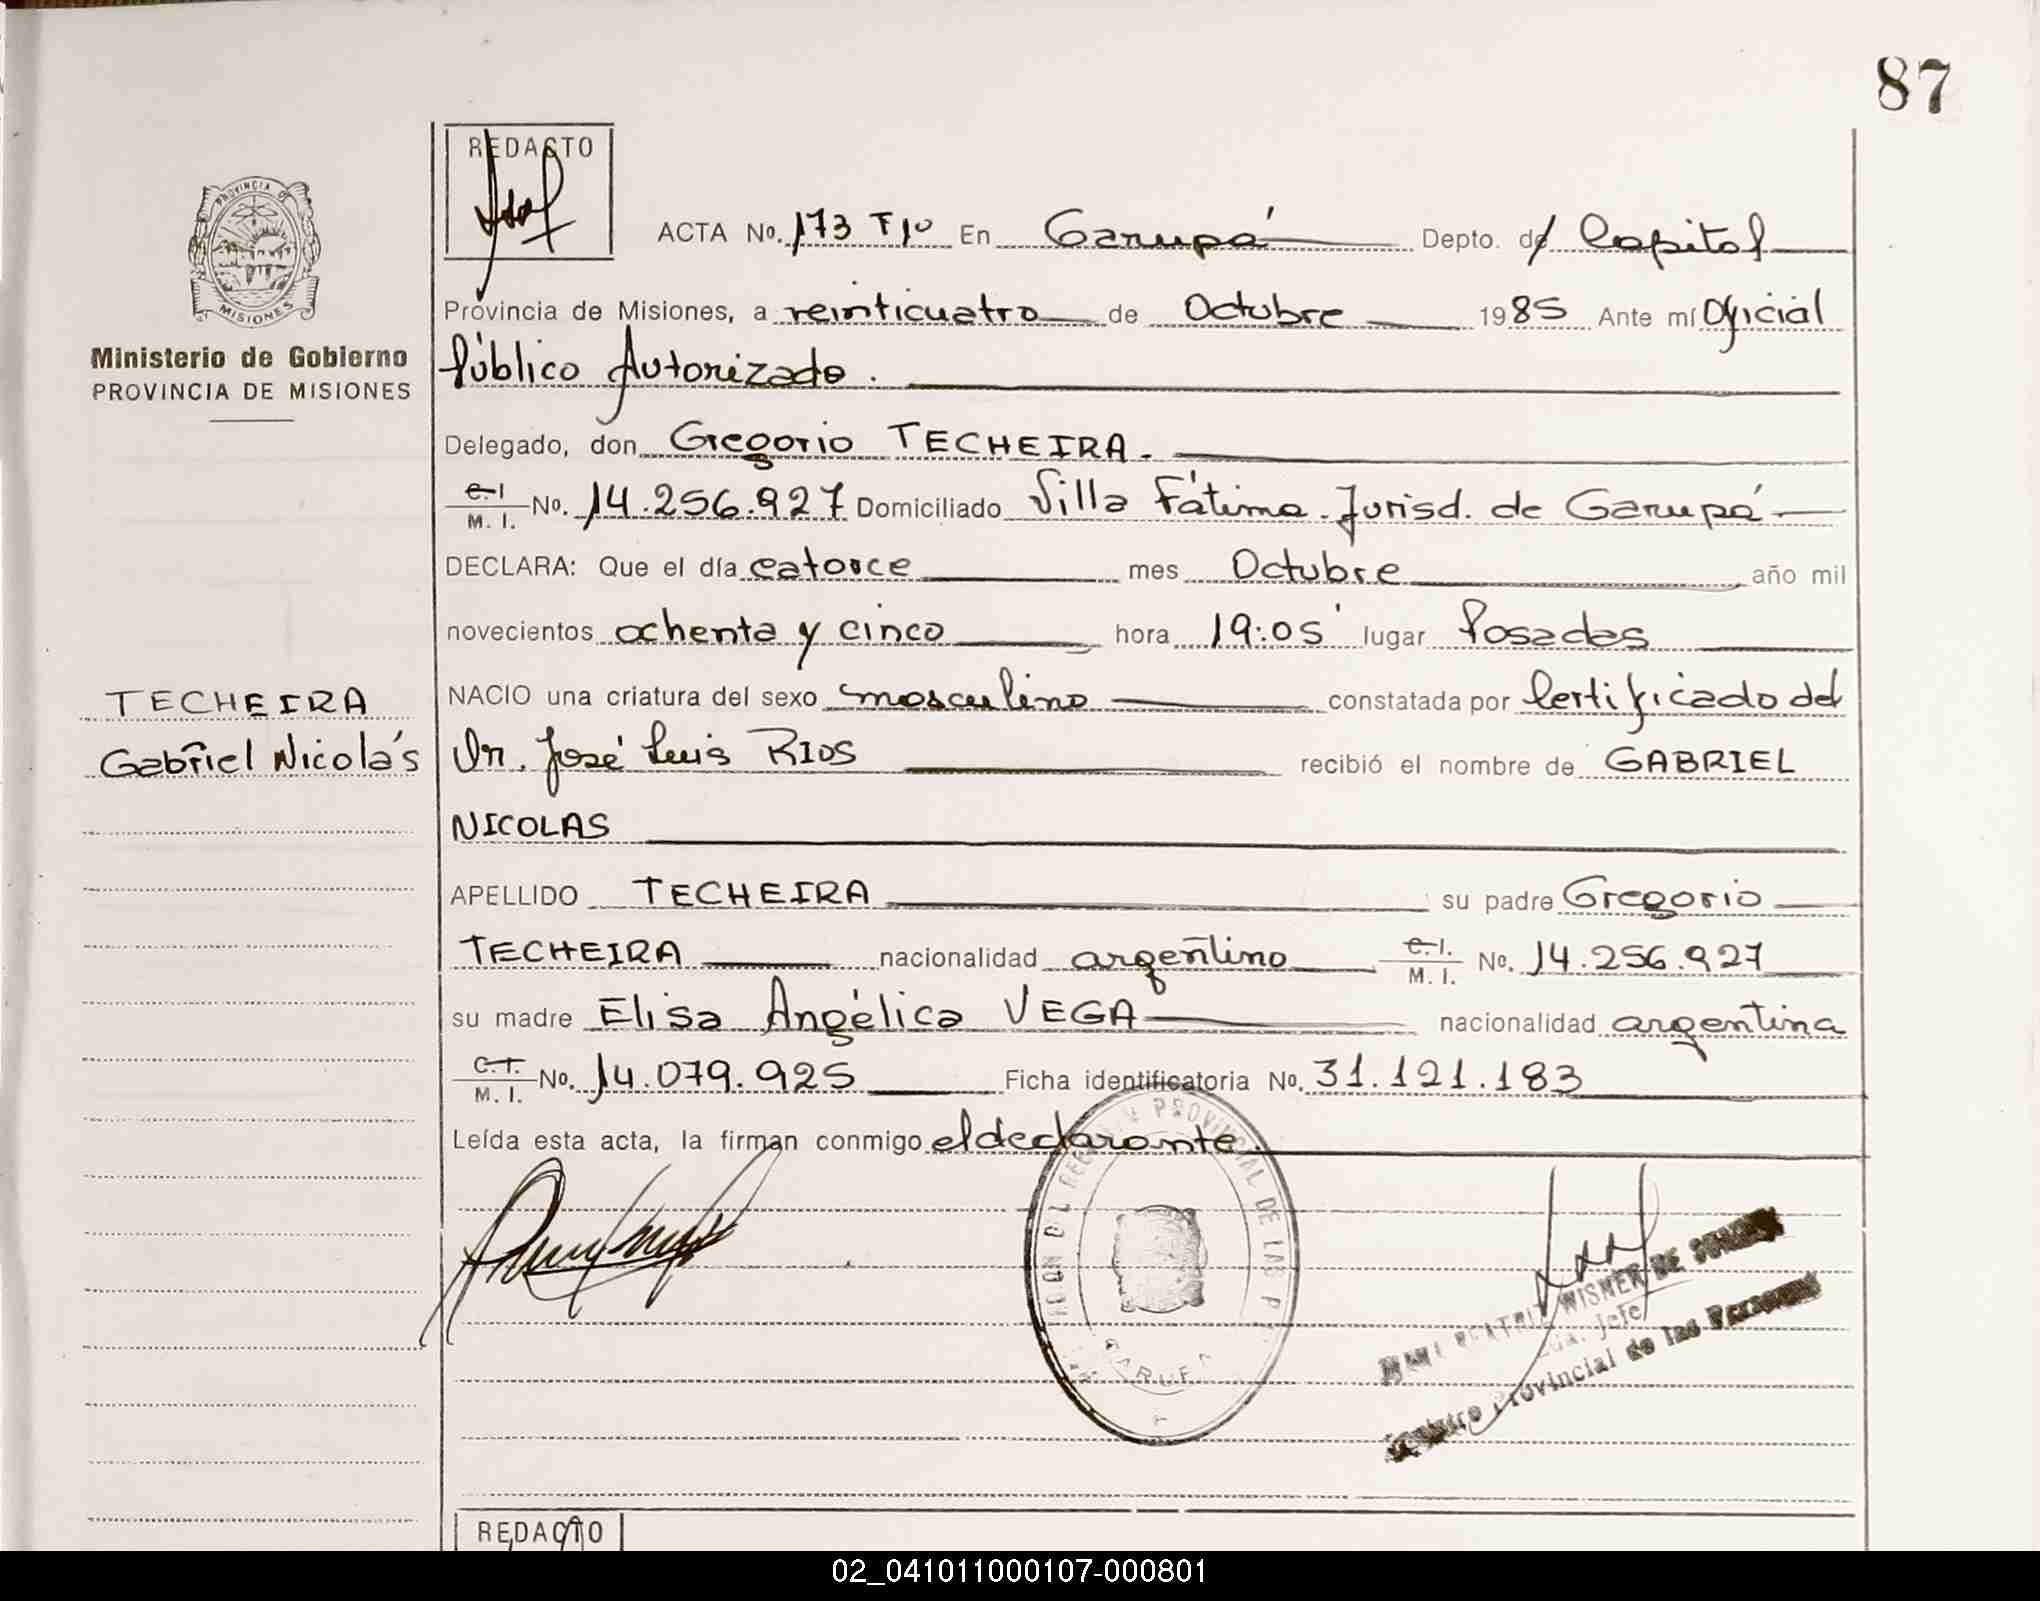 87
REDACTO
PROVINCIA DE
MISIONES
Ministerio de Gobierno
PROVINCIA DE MISIONES
ACTA No. 173 Tº1º En Garupá Depto. de Capital
Provincia de Misiones, a veinticuatro de Octubre 1985 Ante mí Oficial
Público Autorizado.
Delegado, don Gregorio TECHEIRA.
C.I M. I. No. 14.256.927 Domiciliado Villa Fátima. Jurisd. de Garupá
DECLARA: Que el día catorce mes Octubre año mil
novecientos ochenta y cinco hora 19:05' lugar Posadas
TECHEIRA
Gabriel Nicolás
NACIO una criatura del sexo masculino constatada por Certificado del
Dr. José Luis RIOS recibió el nombre de GABRIEL
NICOLAS
APELLIDO TECHEIRA su padre Gregorio
TECHEIRA nacionalidad argentino C.I. M. I. No. 14.256.927
su madre Elisa Angélica VEGA nacionalidad argentina
C.I. M. I. No. 14.079.925 Ficha identificatoria No. 31.121.183
Leída esta acta, la firman conmigo el declarante.
PROVINCIAL DE LAS
BEATRIZ WISNER DE
Jefe
Provincial de las Personas
REDACTO
02_041011000107-000801